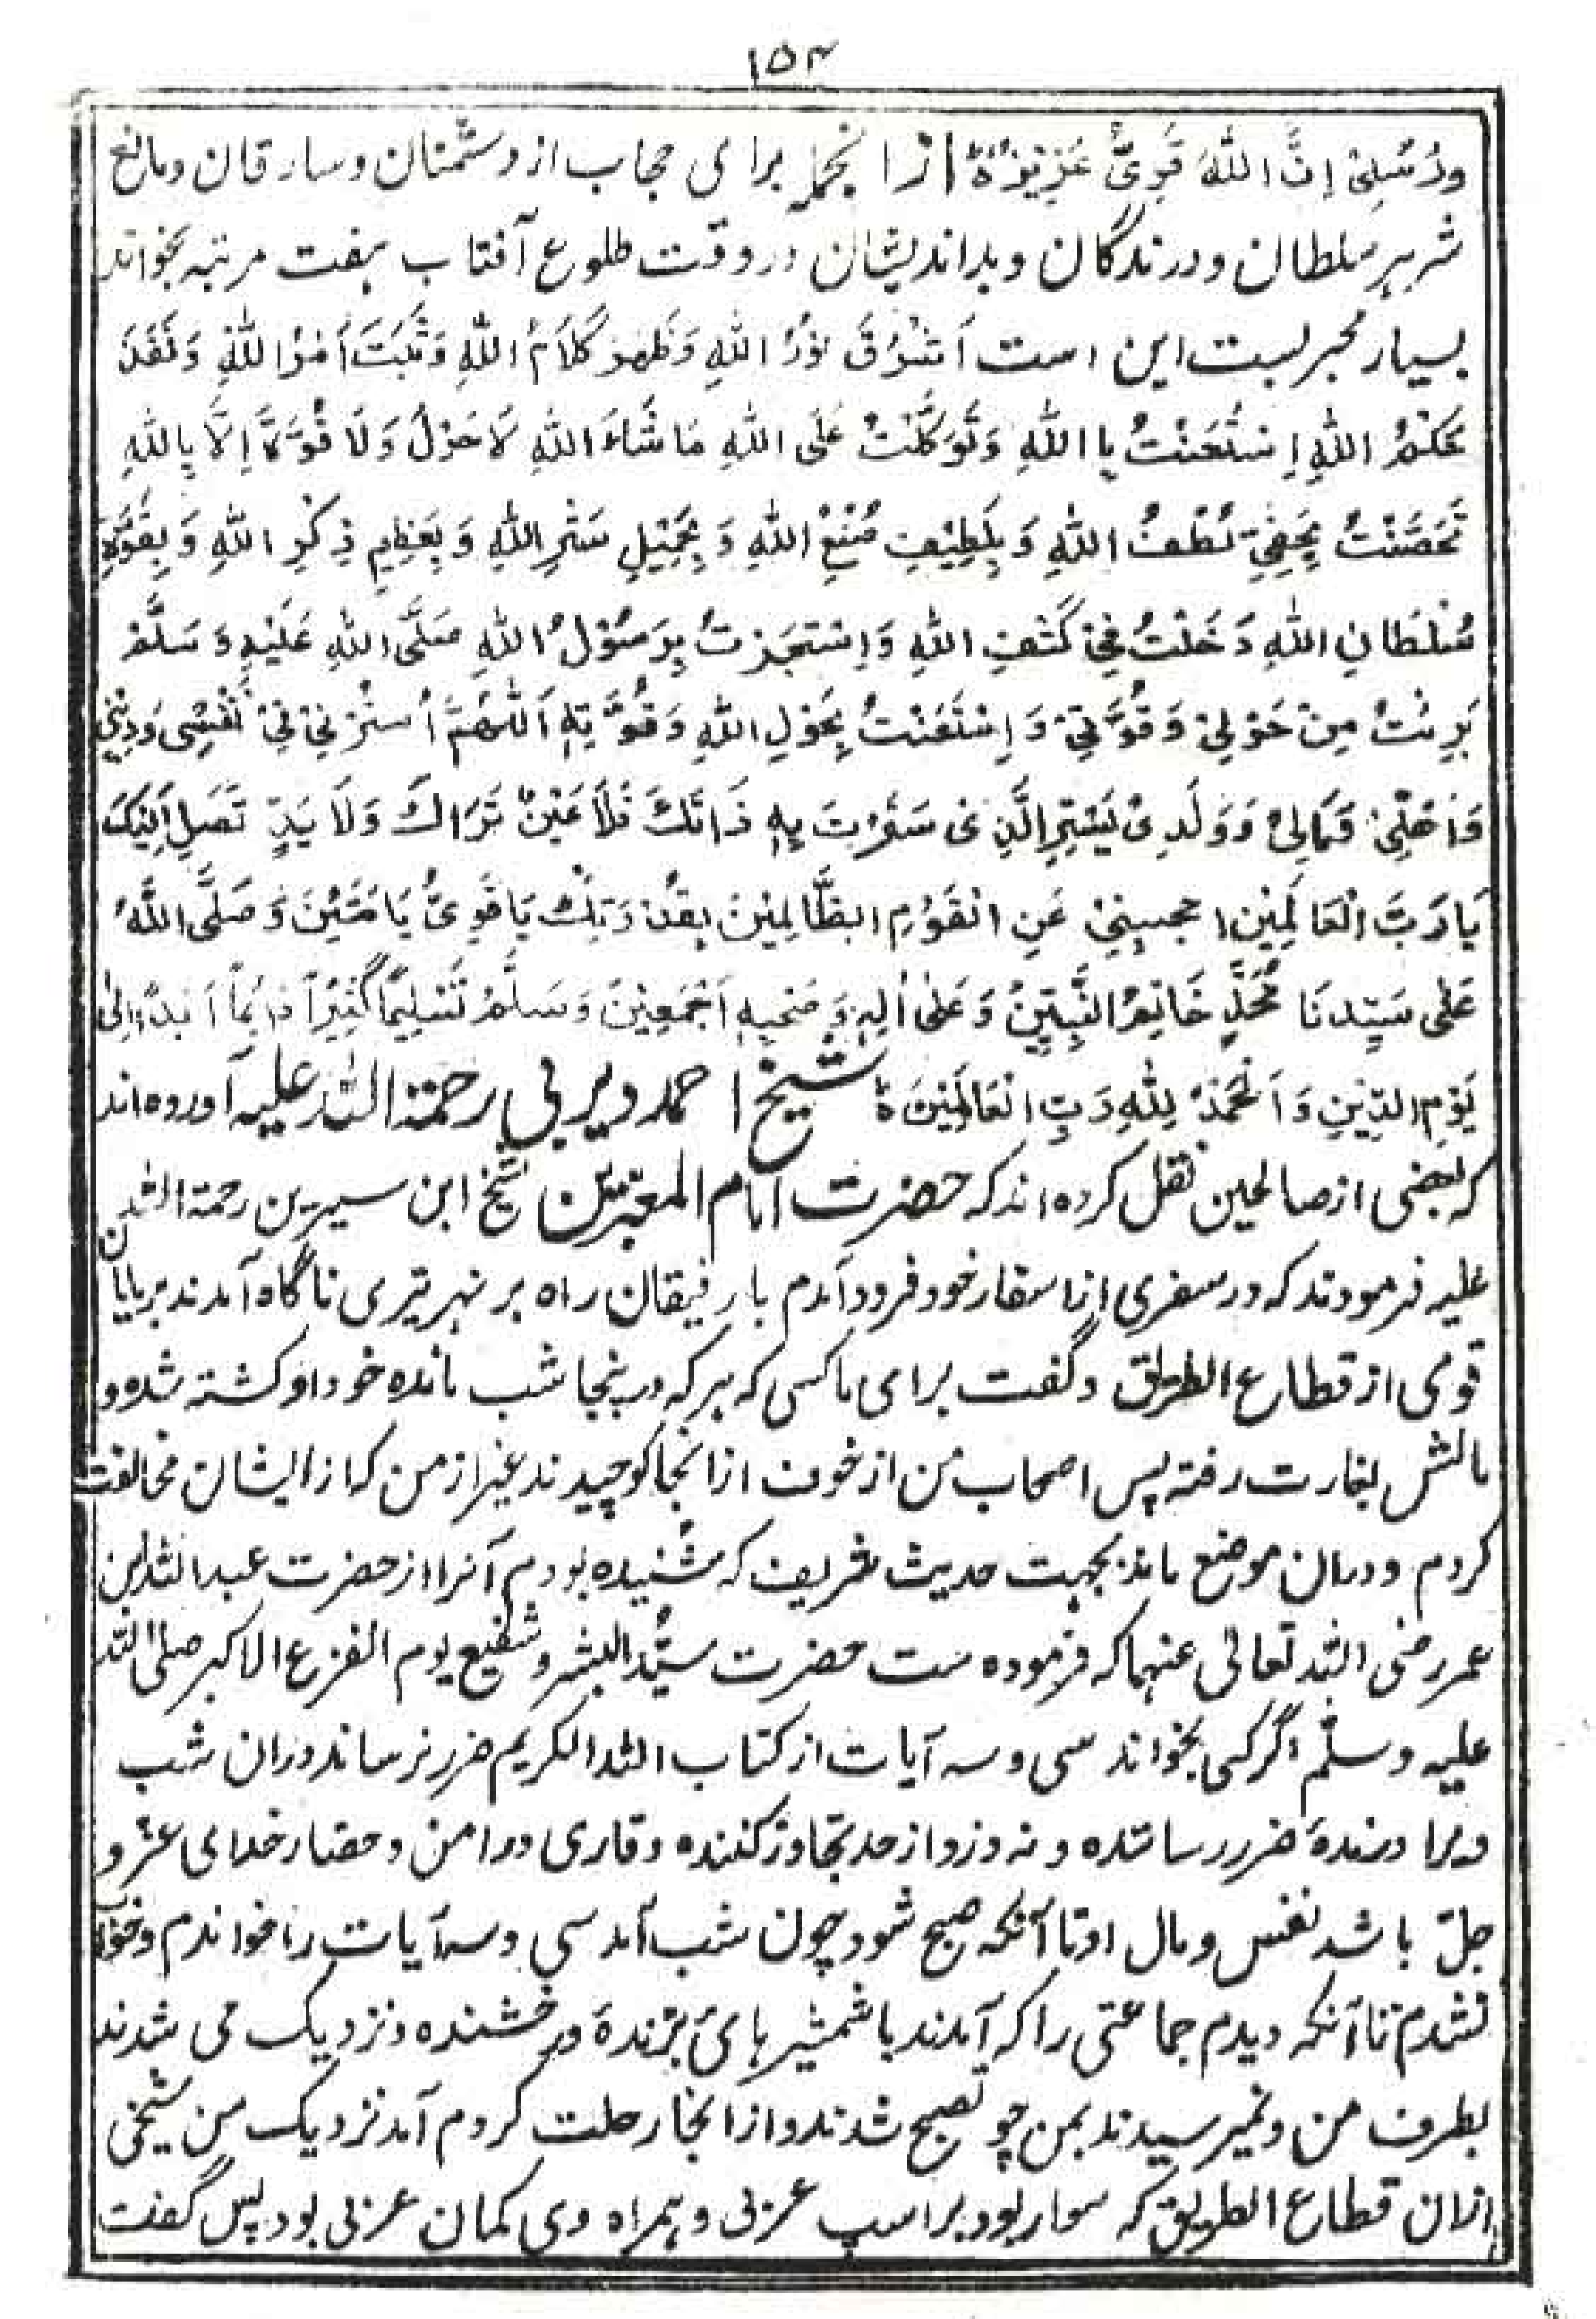 ۱۵۴
وَرُسُلِیْ اِنَّ اللّٰهَ قَوِیٌّ عَزِیْزٌ ازانجمله برای حجاب از دشمنان و سارقان و مانع
شریر سلطان و درندگان و بداندیشان در وقت طلوع آفتاب هفت مرتبه بخواند
بسیار مجربست این است اَشْرَقَ نُوْرُ اللّٰهِ وَظَهَرَ کَلَامُ اللّٰهِ وَثَبَتَ اَمْرُ اللّٰهِ وَنَفَذَ
حُکْمُ اللّٰهِ اِسْتَعَنْتُ بِاللّٰهِ وَتَوَکَّلْتُ عَلَی اللّٰهِ مَاشَاءَ اللّٰهِ لَاحَوْلَ وَلَا قُوَّةَ اِلَّا بِاللّٰهِ
تَحَصَّنْتُ بِخَفِیِّ لُطْفُ اللّٰهِ وَبِلَطِیْفِ صُنْعِ اللّٰهِ وَبِجَمِیْلِ سَتْرِ اللّٰهِ وَبِعَظِیْمِ ذِکْرِ اللّٰهِ وَبِقُوَّةِ
سُلْطَانِ اللّٰهِ دَخَلْتُ فِیْ کَنَفِ اللّٰهِ وَاِسْتَجَرْتُ بِرَسُوْلُ اللّٰهِ صَلَّی اللّٰهِ عَلَیْهِ وَسَلَّمْ
بَرِئْتُ مِنْ حَوْلِیْ وَقُوَّتِیْ وَاِسْتَعَنْتُ بِحَوْلِ اللّٰهِ وَقُوَّتِهِ اَللّٰهُمَّ اُسْتُرْنِیْ فِیْ نَفْسِیْ وَدِیْنِیْ
وَاَهْلِیْ وَمَالِیْ وَوَلَدِیْ بِسَتْرِ الَّذِیْ سَتَرْتَ بِهِ ذَاتَکَ فَلَا عَیْنٌ تَرَاکَ وَلَا یَدٍ تَصَلِ اِلَیْکَ
یَا رَبَّ الْعَالَمِیْنِ اِحْجِبْنِیْ عَنِ الْقَوْمِ الظَّالِمِیْنَ بِقُدْرَتِکَ یَاقَوِیُّ یَامَتِیْنَ وَصَلَّی اللّٰهُ
عَلٰی سَیِّدِنَا مُحَمَّدٍ خَاتَمِ النَّبِیِّیْنَ وَعَلٰی اٰلِهِ وَصَحْبِهِ اَجْمَعِیْنَ وَسَلَّمْ تَسْلِیْمًا کَثِیْرًا دَائِمًا اَبَدًا اِلٰی
یَوْمِ الدِّیْنِ وَاَلْحَمْدُ لِلّٰهِ رَبِّ الْعَالَمِیْنَ شیخ احمد دیربی رحمة الله علیه آورده اند
که بعضی از صالحین نقل کرده اند که حضرت امام المعبرین شیخ ابن سیرین رحمة الله
علیه فرمودند که در سفری از اسفار خود فرود آمدم با رفیقان راه بر نهر تیری ناگاه آمدند بر یایان
قومی از قطاع الطریق و گفت برای ما کسی که هر که درینجا شب مانده خود او کشته شده و
مالش بغارت رفته پس اصحاب من از خوف ازانجا کوچیدند غیر از من که از ایشان مخالفت
کردم و در ان موضع ماندم بجهت حدیث شریف که شنیده بودم آنرا از حضرت عبدالله ابن
عمر رضی الله تعالی عنهما که فرموده ست حضرت سیّد البشر و شفیع یوم الفزع الاکبر صلی الله
علیه وسلّم اگر کسی بخواند سی و سه آیات از کتاب الله الکریم ضرر نرساند دران شب
ویرا درندهٔ ضرر رسانده و نه دزد از حد تجاوز کننده و قاری در امن و حصار خدای عزّ و
جلّ باشد نفس و مال او تا آنکه صبح شود چون شب آمد سی و سه آیات را خواندم و خواب
نشدم تا آنکه دیدم جماعتی را که آمدند با شمشیرهای برّندهٔ درخشنده و نزدیک می شدند
بطرف من و نمیرسیدند بمن چو تصبح شدند و ازانجا رحلت کردم آمد نزدیک من شیخی
ازان قطاع الطریق که سوار بود بر اسپ عربی و همراه وی کمان عربی بود پس گفت